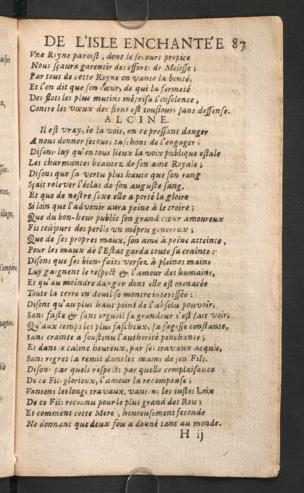 DE L'ISLE ENCHANTÉE 87
Vne Reyne paroist, dont le secours propice
Nous sçaura garentir des efforts de Melisse ;
Par tous de cette Reyne on vante la bonté,
Et l'on dit que son cœur, de qui la fermeté
Des flots les plus mutins méprisa l'insolence,
Contre les vœux des siens est tousiours sans deffense.
ALCINE.
Il est vray, ie la vois, en ce pressant danger
A nous donner secours taschons de l'engager ;
Disons luy qu'en tous lieux la voix publique estale
Les charmantes beautez de son ame Royale ;
Disons que sa vertu plus haute que son rang
Sçait relever l'éclat de son auguste sang,
Et que de nostre sexe elle a porté la gloire
Si loin que l'advenir aura peine à le croire ;
Que du bon-heur public son grand cœur amoureux
Fit tousjours des perils vn mépris genereux ;
Que de ses propres maux, son ame à peine atteinte,
Pour les maux de l'Estat garda toute sa crainte :
Disons que ses bien-faits versez à pleines mains
Luy gaignent le respect & l'amour des humains,
Et qu'au moindre danger dont elle est menacée
Toute la terre en deuil se montre interessée :
Disons qu'au plus haut point de l'absolu pouvoir,
Sans faste & sans orgueil sa grandeur s'est fait voir;
Qu'aux temps les plus fascheux, sa sagesse constante,
Sans crainte a soustenu l'authorité penchante ;
Et dans le calme heureux, par ses travaux acquis,
Sans regret la remit dans les mains de son Fils.
Disons par quels respects, par quelle complaisance
De ce Fils glorieux, l'amour la recompense ;
Vantons les longs travaux, vantons les iustes Loix
De ce Fils reconnu pour le plus grand des Rois ;
Et comment cette Mere, heureusement feconde
Ne donnant que deux fois a donné tant au monde.
H ij